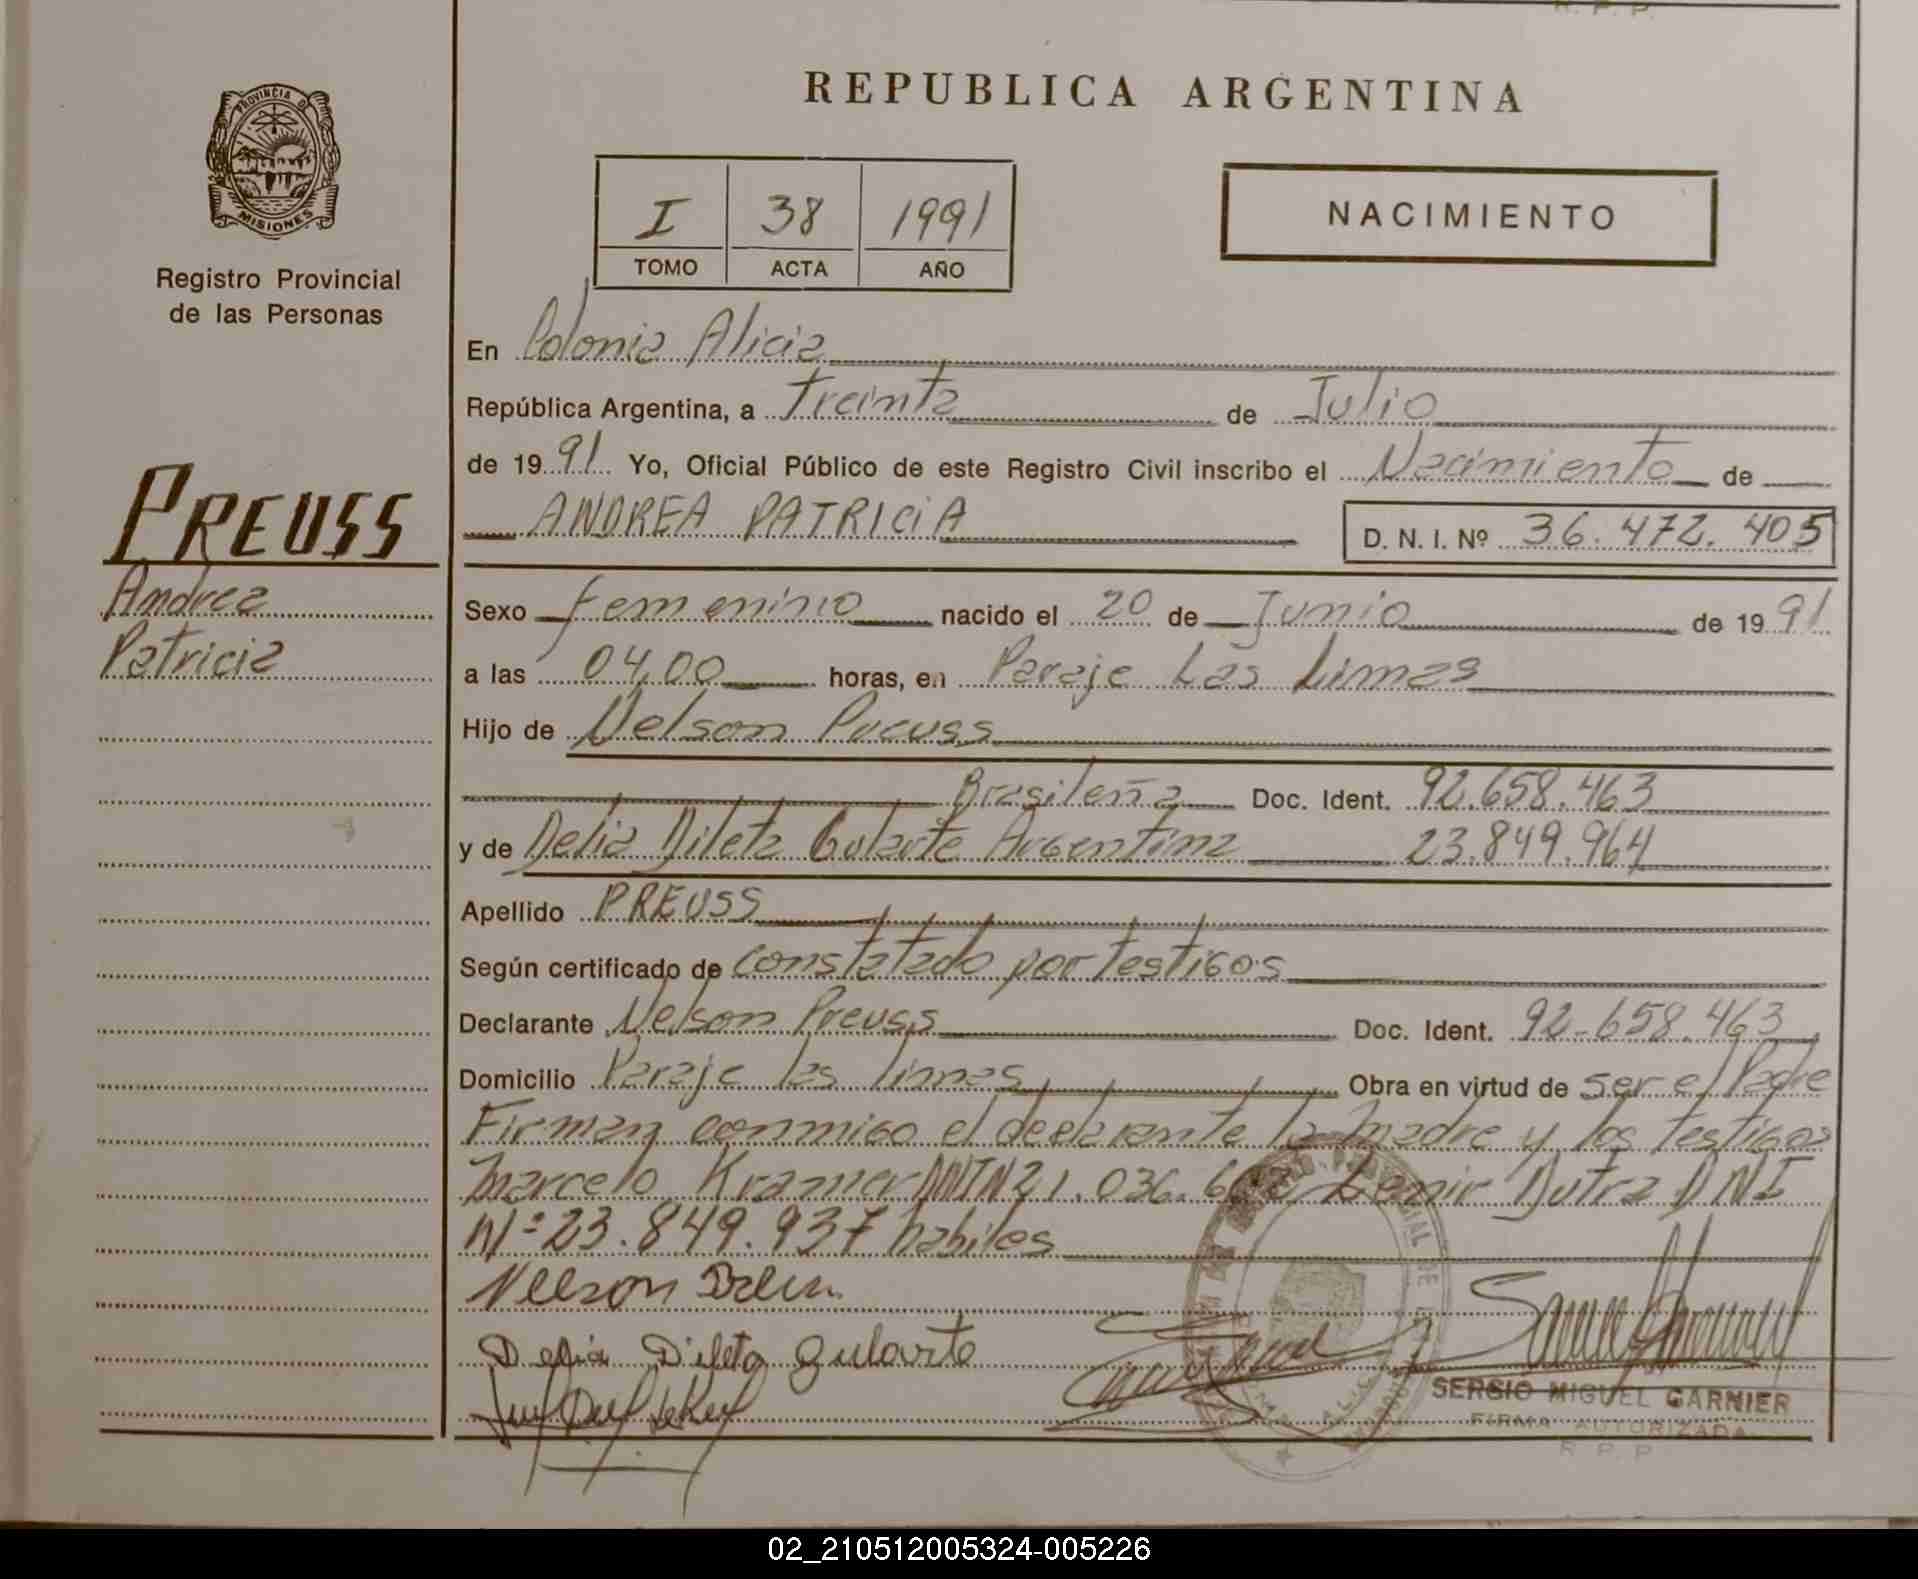 R. P. P.
REPUBLICA ARGENTINA
PROVINCIA DE
MISIONES
Registro Provincial
de las Personas
I 38 1991
TOMO ACTA AÑO
NACIMIENTO
En Colonia Alicia
República Argentina, a Treinta de Julio
de 1991 Yo, Oficial Público de este Registro Civil inscribo el Nacimiento de
ANDREA PATRICIA D. N. I. Nº 36.472.405
PREUSS
Andrea
Patricia
Sexo femenino nacido el 20 de Junio de 1991
a las 04,00 horas, en Paraje Las Limas
Hijo de Nelson Preuss
Brasileña Doc. Ident. 92.658.463
y de Delia Dileta Gularte Argentina 23.849.964
Apellido PREUSS
Según certificado de constatado por testigos
Declarante Nelson Preuss Doc. Ident. 92-658.463
Domicilio Paraje las limas Obra en virtud de ser el Padre
Firman conmigo el declarante la madre y los testigos
Marcelo Kramer DNI N 21.036. Lemir Dutra DNI
Nº 23.849.937 habiles
Nelson
Delia Dileta Gularte
SERGIO MIGUEL GARNIER
FIRMA AUTORIZADA
R. P. P.
02_210512005324-005226